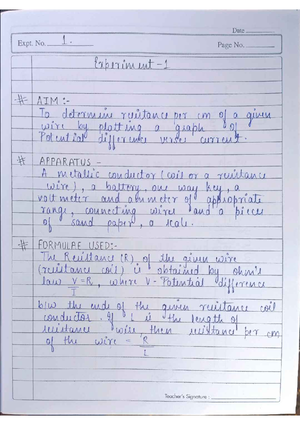 Date
Expt. No. 1.
Page No.
Experiment-1
# AIM :-
To determine resitance per cm of a given
wire by plotting a graph of
Potential difference verses current.
# APPARATUS -
A metallic conductor (coil or a resistance
wire), a battery, one way key, a
voltmeter and ammeter of appropriate
range, connecting wires and a pieces
of sand paper, a scale.
# FORMULAE USED:-
The Resistance (R) of the given wire
(resistance coil) is obtained by ohm's
law V/I = R, where V - Potential difference
b/w the ends of the given resistance coil
conductor. If L is the length of
resistance wire then resistance per cm
of the wire = R/L
Teacher's Signature: